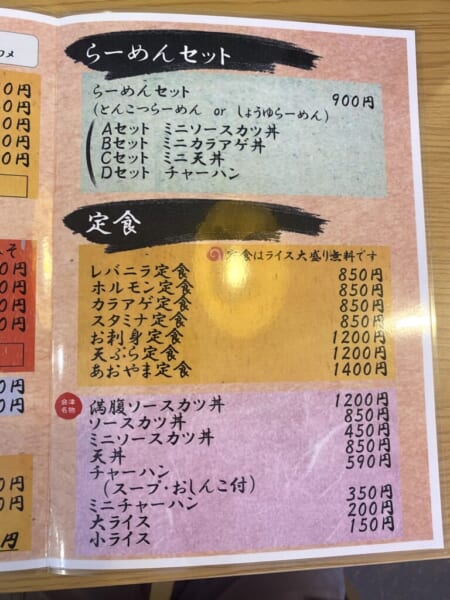 らーめんセット
らーめんセット 900円
(とんこつらーめん or しょうゆらーめん)
Aセット ミニソースカツ丼
Bセット ミニカラアゲ丼
Cセット ミニ天丼
Dセット チャーハン
定食
定食はライス大盛り無料です
レバニラ定食 850円
ホルモン定食 850円
カラアゲ定食 850円
スタミナ定食 850円
お刺身定食 1200円
天ぷら定食 1200円
あおやま定食 1400円
会津名物
満腹ソースカツ丼 1200円
ソースカツ丼 850円
ミニソースカツ丼 450円
天丼 850円
チャーハン 590円
(スープ・おしんこ付)
ミニチャーハン 350円
大ライス 200円
小ライス 150円